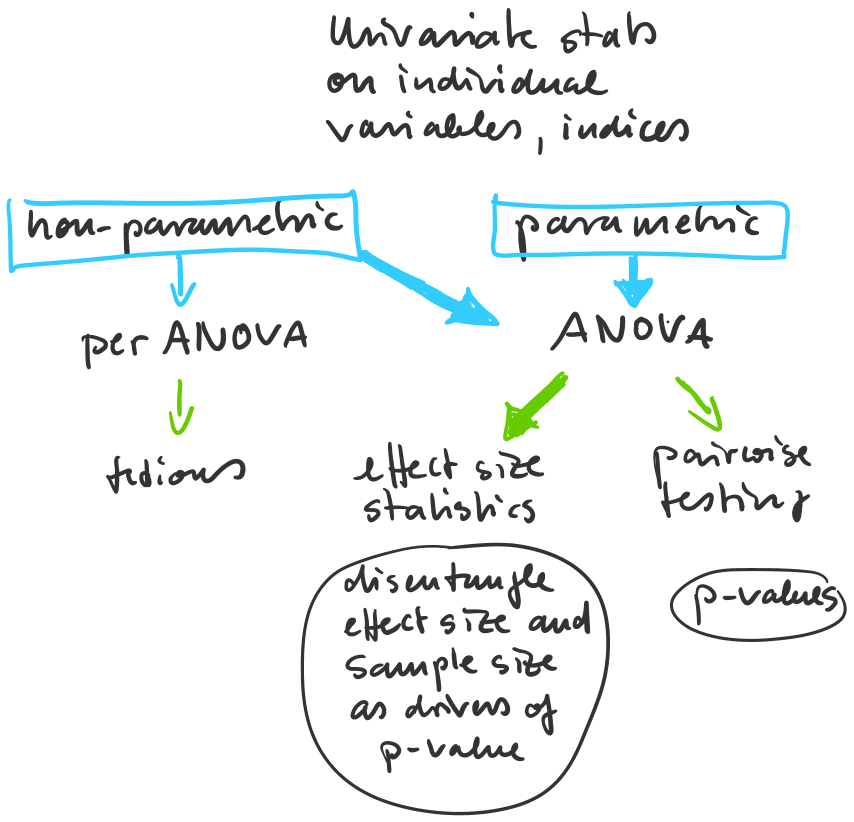 Univariate stats
on individual
variables, indices
non-parametric
parametric
per ANOVA
ANOVA
tedious
effect size
statistics
pairwise
testing
disentangle
effect size and
sample size
as drivers of
p-value
p-values